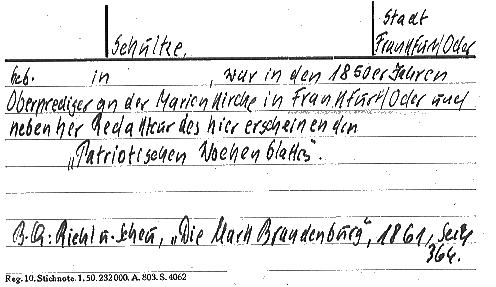 Stadt
Schultze, Frankfurt/Oder
geb. in , war in den 1850er Jahren
Oberprediger an der Marienkirche in Frankfurt/Oder und
nebenher Redakteur des hier erscheinenden
„Patriotischen Wochenblatts".
B. Qu: Riehl u. Scheu, „Die Mark Brandenburg", 1861, Seite
364.
Reg. 10. Stichnote. 1, 50. 232000. A. 803. S. 4062